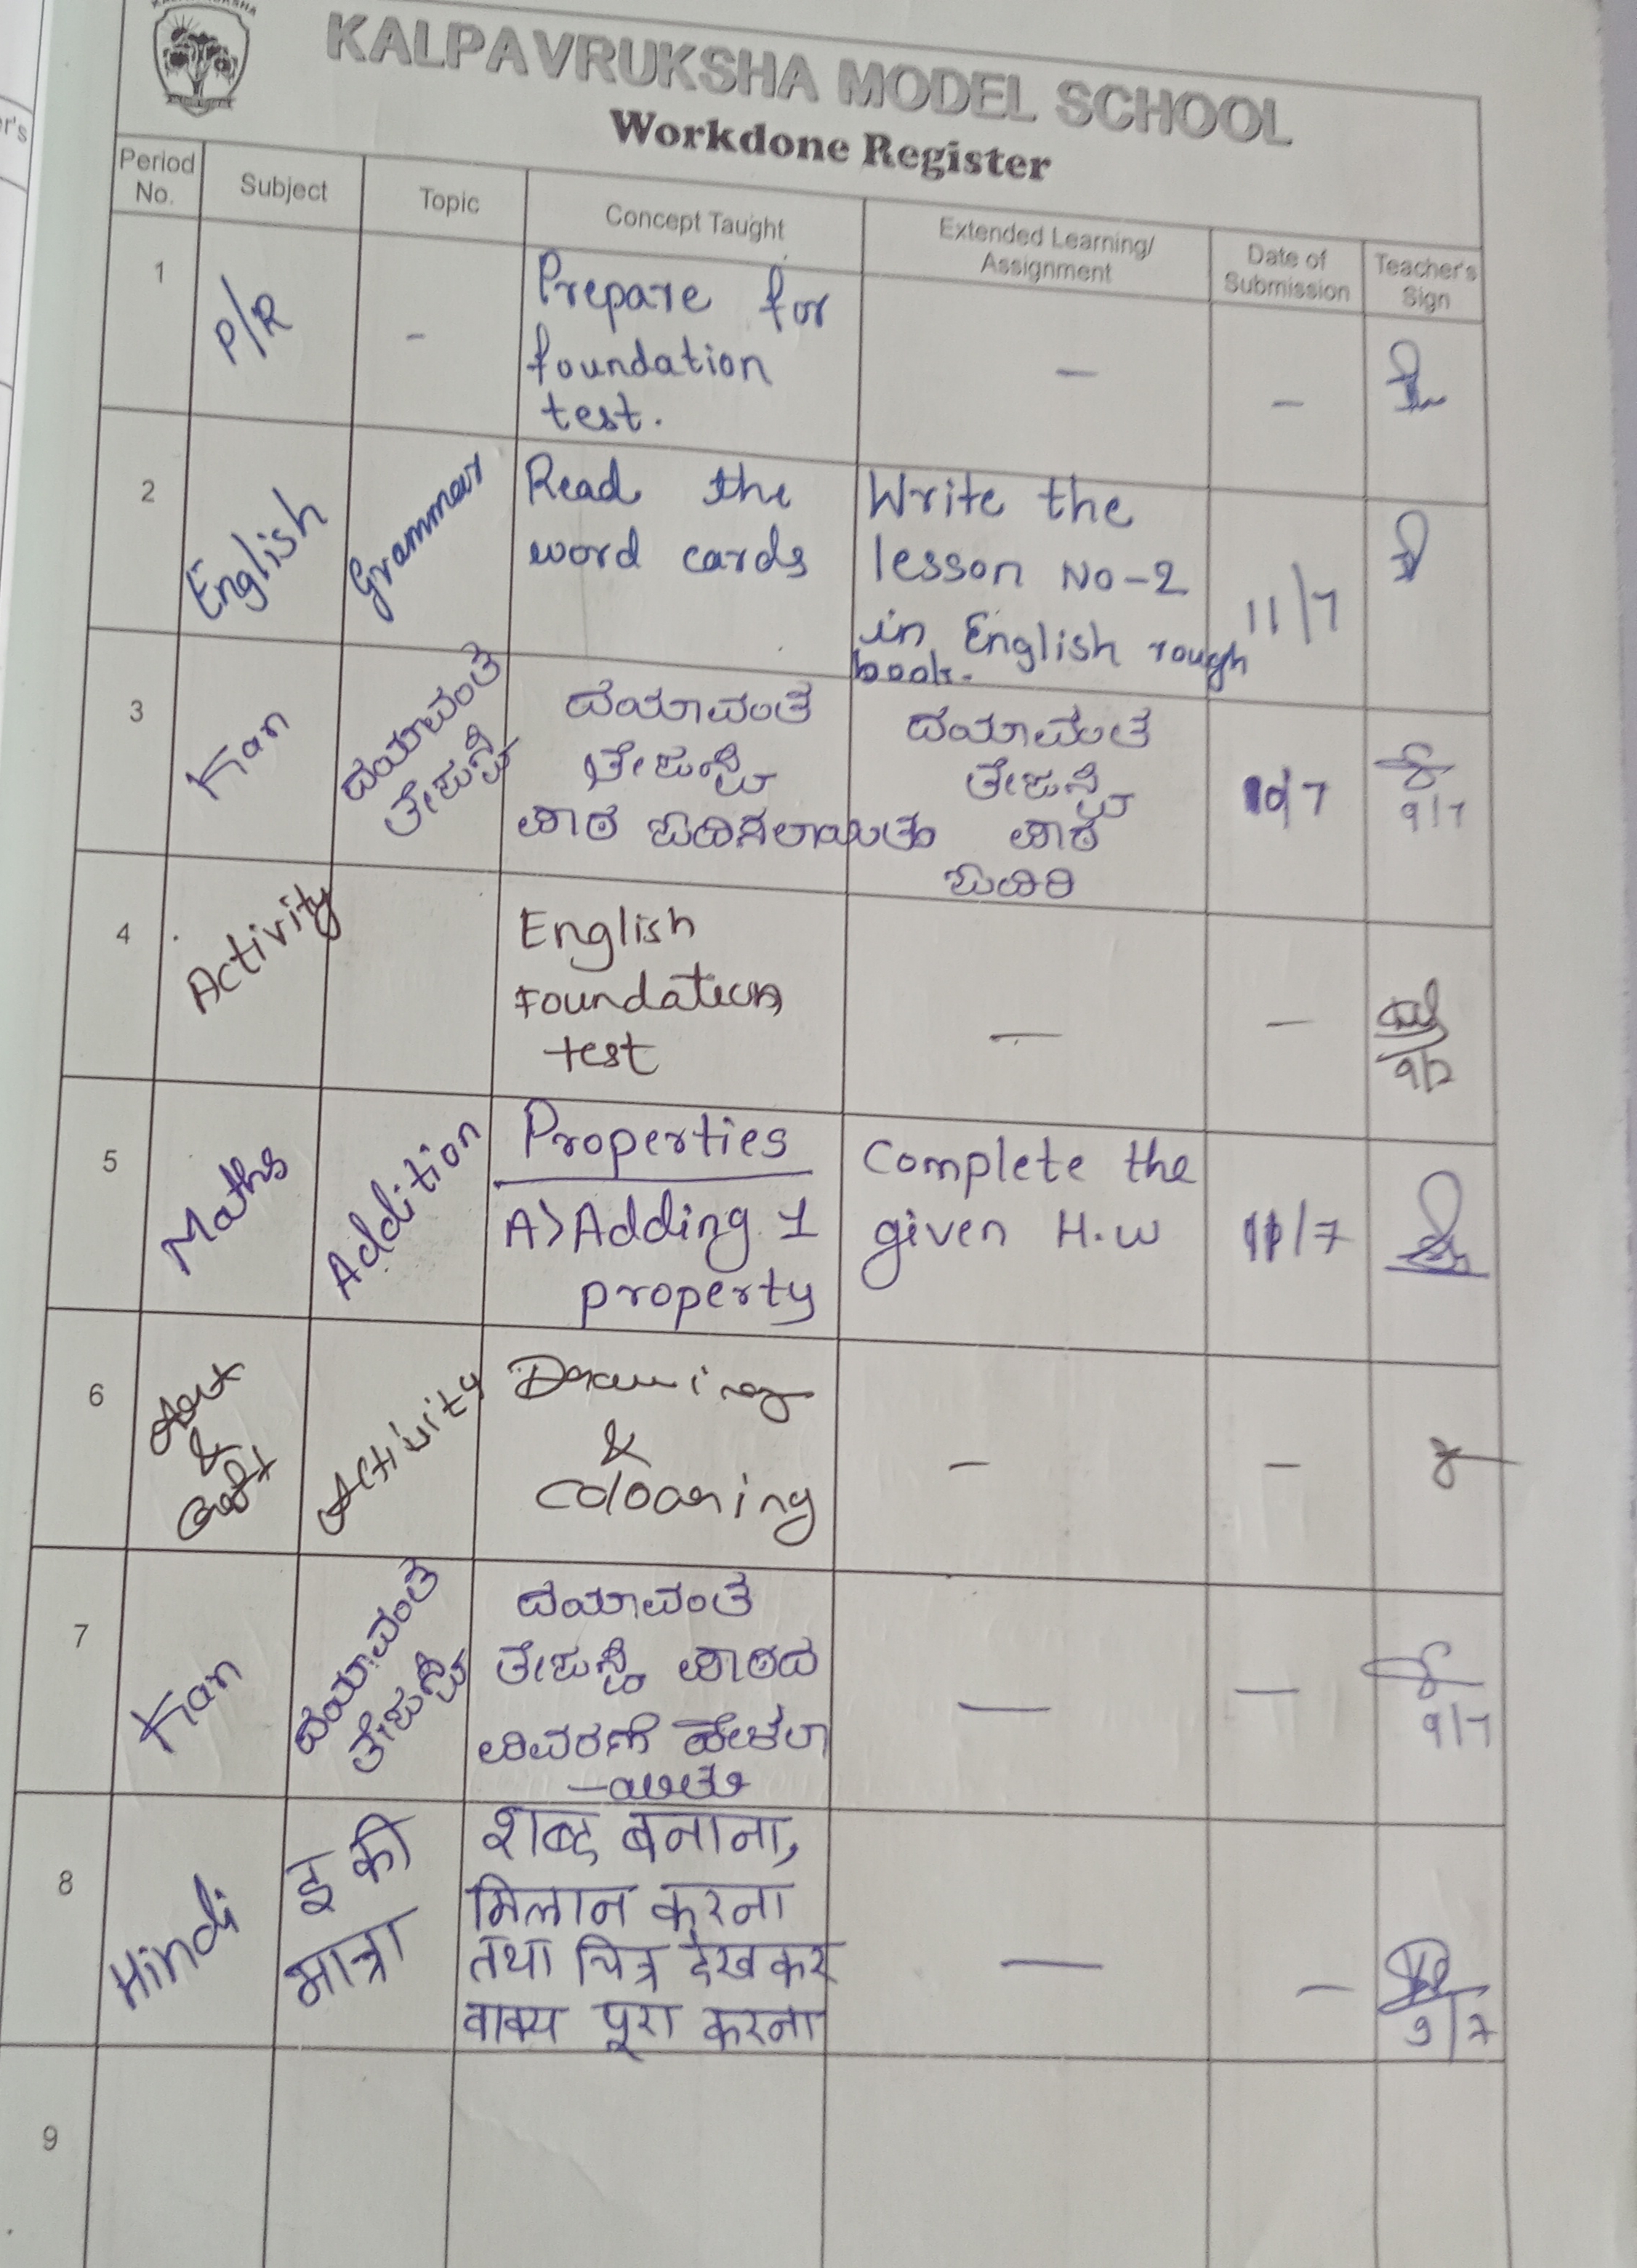 KALPAVRUKSHA MODEL SCHOOL
Workdone Register
Period No.
Subject
Topic
Concept Taught
Extended Learning/
Assignment
Date of
Submission
Teacher's
Sign
1
P/R
-
Prepare for
foundation
test.
-
-
2
English
Grammar
Read the
word cards
Write the
lesson No-2
in English rough
book.
11/7
3
Kan
ದಯಾವಂತೆ
ತೇಜಸ್ವಿ
ದಯಾವಂತೆ
ತೇಜಸ್ವಿ
ಪಾಠ ಓದಿಸಲಾಯಿತು
ದಯಾವಂತೆ
ತೇಜಸ್ವಿ
ಪಾಠ
ಓದಿರಿ
10/7
9/7
4
Activity
English
Foundation
test
-
-
9/7
5
Maths
Addition
Properties
A) Adding 1
property
Complete the
given H.W
11/7
6
Art
&
Craft
Activity
Drawing
&
Colouring
-
-
7
Kan
ದಯಾವಂತೆ
ತೇಜಸ್ವಿ
ದಯಾವಂತೆ
ತೇಜಸ್ವಿ ಪಾಠದ
ವಿವರಣೆ ಹೇಳಲಾ
-ಯಿತು
-
-
9/7
8
Hindi
इ की
मात्रा
शब्द बनाना,
मिलान करना
तथा चित्र देखकर
वाक्य पूरा करना
-
-
9/7
9